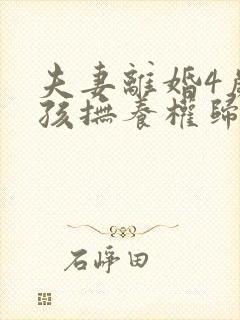 夫妻離婚4
孩撫養權歸
石崢田